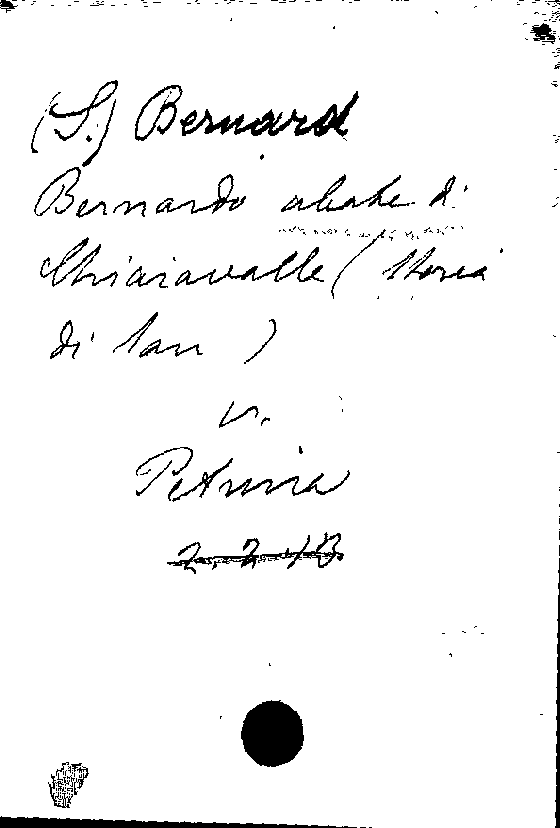 (S.) Bernard
Bernardo abate di
Chiaravalle (Storia
di San )
v.
2.2.13